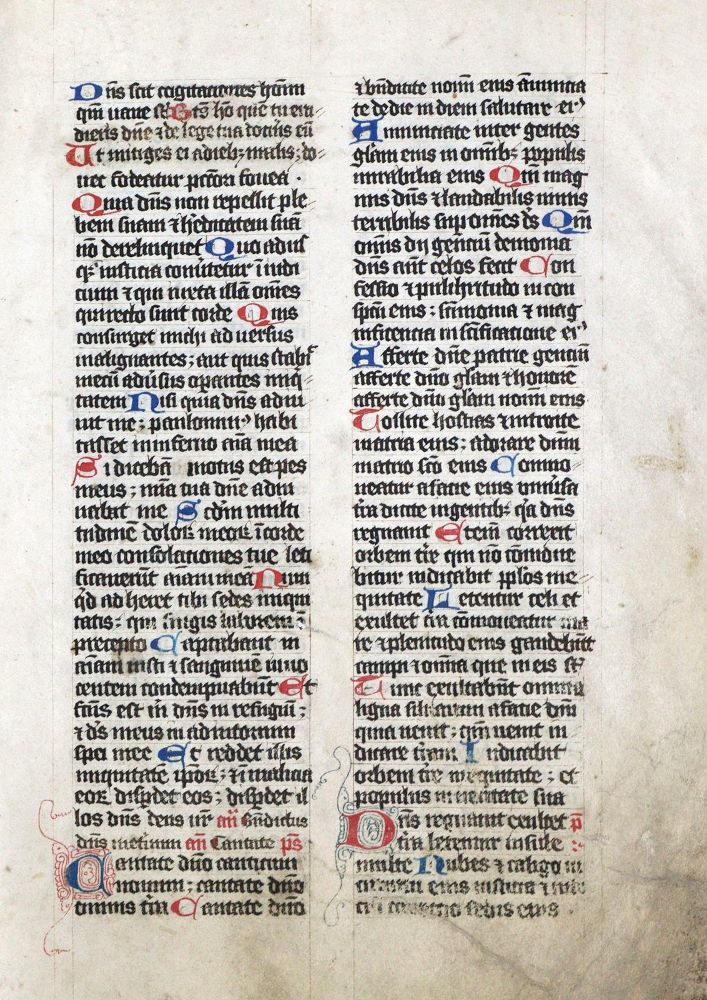 Dn̄s scit cogitationes hōīm
qm̄ vane sūt Btūs hō quē tu eru
dieris dn̄e ⁊ de lege tua docuis eū
Ut mitiges ei a dieb; malis; do
nec fodeatur pctōri fovea ·
Quia dn̄s non repellit ple
bem suam ⁊ h̓editatem suā
nō derelinquet Quo adus
q; iusticia conv̓tetur ī iudi
cium ⁊ qui iuxta illā om̄es
qui recto sunt corde Quis
consurget michi adversus
malignantes; aut quis stabit
mecū adv̓sus op̄antes iniq
tatem Nisi quia dn̄s adiu
vit me; paulominꝰ habi
tasset in inferno aīa mea
Si dicebā motus est pes
meus; mīa tua dn̄e adiu
vabat me Scdm̄ multi
tudinē doloꝝ meoꝝ ī corde
meo consolationes tue leti
ficaverūt aīam meā Nun
qd adheret tibi sedes iniqui
tatis; qui fingis laborem ī
precepto Captabunt in
aīam iusti ⁊ sanguinē inno
centem condempnabūt Et
fcūs est m̄ dn̄s in refugiū;
⁊ ds̄ meus in adiutorium
spei mee Et reddet illis
iniquitatē ip̄oꝝ; ⁊ ī malicia
eoꝝ disp̄det eos; disp̄det il
los dn̄s deus nr̄ an̄ Bn̄dictus
dn̄s in et̓num an̄ Cantate ps̄
Cantate dn̄o canticum
novum; cantate dn̄o
omnis tr̄a Cantate dn̄o
⁊ bn̄dicite noīni eius ān̄uncia
te de die in diem salutare eiꝰ
Annunciate inter gentes
glāam eius in omīb; populis
mirabilia eius Qm̄ mag
nus dn̄s ⁊ laudabilis nimis
terribilis sup̄ om̄es ds̄ Qm̄
omnis dii gentiū demonia
dn̄s aūt celos fecit Con
fessio ⁊ pulchritudo in con
spc̄u eius; sc̄imonia ⁊ mag
nificencia in sc̄ificatione eiꝰ
Afferte dn̄o patrie gentiū
afferte dn̄o glāam ⁊ honorē
afferte dn̄o glāam noīni eius
Tollite hostias ⁊ introite
in atria eius; adorate dn̄m
in atrio sc̄o eius Commo
veatur a facie eius univ̓sa
tr̄a dicite in gentib; qa dn̄s
regnavit Etenī correxit
orbem tr̄e qui nō cōmove
bitur iudicabit pplōs in e
quitate Letentur celi et
exultet tr̄a cōmoveatur ma
re ⁊ plenitudo eius gaudebūt
campi ⁊ omīa que in eis st̄
Tunc exultabūt omnia
ligna silvarum a facie dn̄i
quia venit; qm̄ venit iu
dicare tr̄am Iudicabit
orbem tr̄e in equitate; et
populos in veritate sua
Dn̄s regnavit exultet p̄
tr̄a letentur insule
multe Nubes ⁊ caligo in
circuitu eius iusticia ⁊ iudi
ciū correctio sedis eius ·